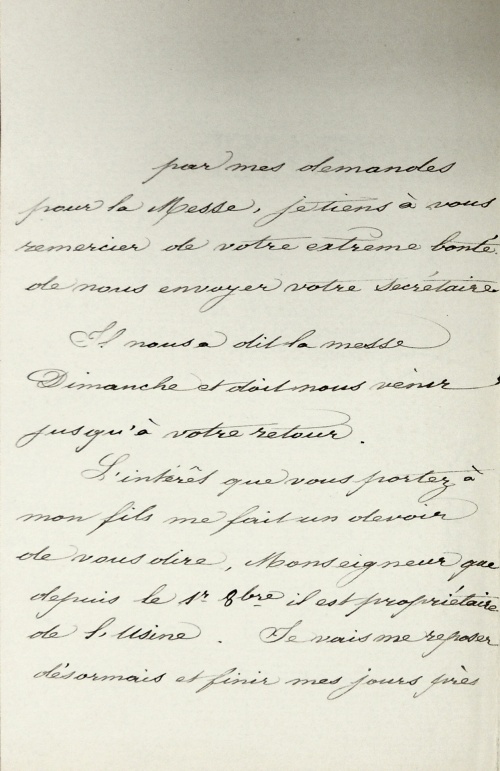 par mes demandes
pour la Messe, je tiens à vous
remercier de votre extreme bonté
de nous envoyer votre secrétaire
Il nous a dit la messe
Dimanche et doit nous venir
jusqu'à votre retour.
L'intérêt que vous portez à
mon fils me fait un devoir
de vous dire, Monseigneur que
depuis le 1r 8bre il est propriétaire
de l'Usine. Je vais me reposer
désormais et finir mes jours près